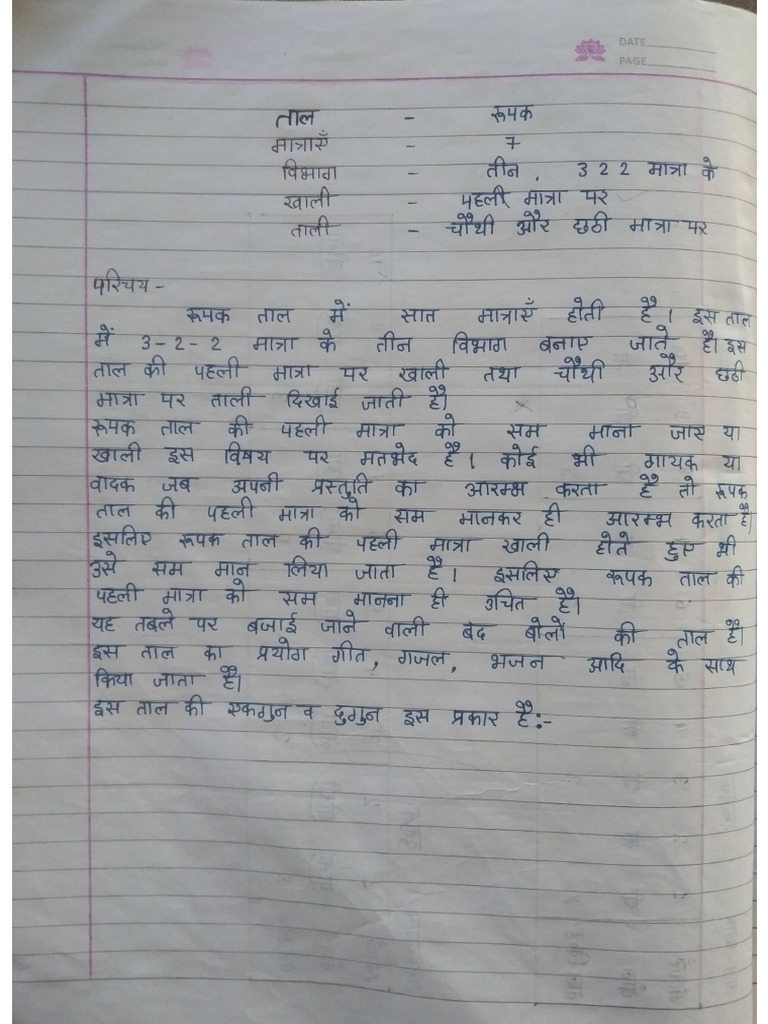 DATE
PAGE
ताल - रूपक
मात्राएँ - 7
विभाग - तीन , 3 2 2 मात्रा के
खाली - पहली मात्रा पर
ताली - चौथी और छठी मात्रा पर
परिचय -
रूपक ताल में सात मात्राएँ होती है । इस ताल
में 3-2-2 मात्रा के तीन विभाग बनाए जाते है। इस
ताल की पहली मात्रा पर खाली तथा चौथी और छठी
मात्रा पर ताली दिखाई जाती है।
रूपक ताल की पहली मात्रा को सम माना जाए या
खाली इस विषय पर मतभेद है । कोई भी गायक या
वादक जब अपनी प्रस्तुति का आरम्भ करता है तो रूपक
ताल की पहली मात्रा को सम मानकर ही आरम्भ करता है।
इसलिए रूपक ताल की पहली मात्रा खाली होते हुए भी
उसे सम मान लिया जाता है । इसलिए रूपक ताल की
पहली मात्रा को सम मानना ही उचित है।
यह तबले पर बजाई जाने वाली बंद बोलों की ताल है।
इस ताल का प्रयोग गीत, गजल, भजन आदि के साथ
किया जाता है।
इस ताल की एकगुन व दुगुन इस प्रकार है:-